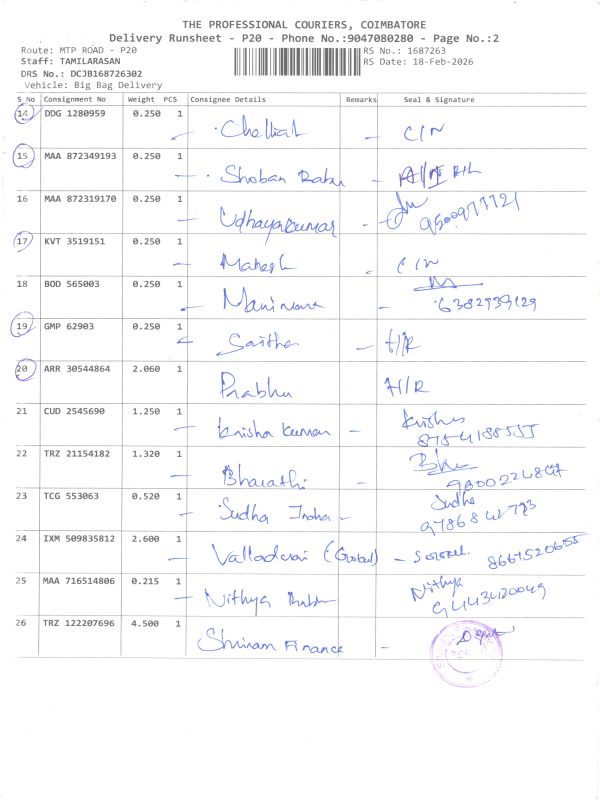 THE PROFESSIONAL COURIERS, COIMBATORE
Delivery Runsheet - P20 - Phone No.:9047080280 - Page No.:2
Route: MTP ROAD - P20 RS No.: 1687263
Staff: TAMILARASAN RS Date: 18-Feb-2026
DRS No.: DCJB168726302
Vehicle: Big Bag Delivery
S_No Consignment No Weight PCS Consignee Details Remarks Seal & Signature
14 DDG 1280959 0.250 1
15 MAA 872349193 0.250 1
Shoban
16 MAA 872319170 0.250 1
Udhayakumar
17 KVT 3519151 0.250 1
Mahesh
18 BOD 565003 0.250 1
6382939129
19 GMP 62903 0.250 1
20 ARR 30544864 2.060 1
Prabhu
21 CUD 2545690 1.250 1
Krishna Kumar
22 TRZ 21154182 1.320 1
Bharathi
23 TCG 553063 0.520 1
Sudha - Sudha
9786842793
24 IXM 509835812 2.600 1
8667520655
25 MAA 716514806 0.215 1
Nithya - Nithya
9443420049
26 TRZ 122207696 4.500 1
Shriram Finance -